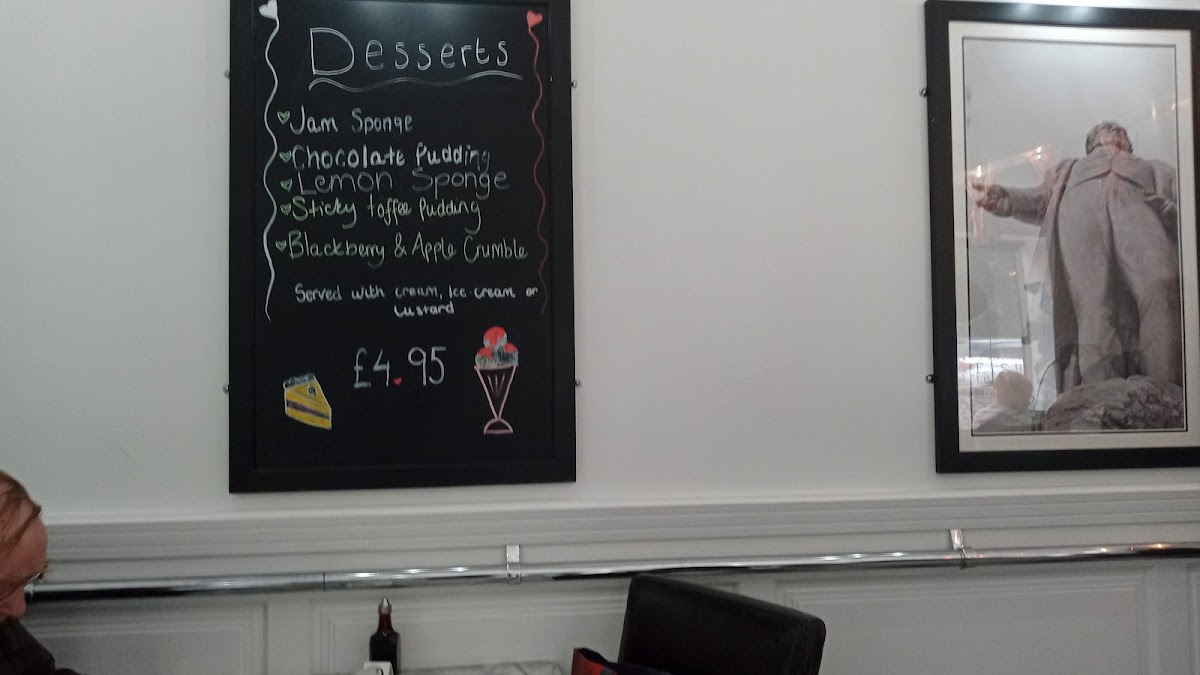 Desserts
Jam Sponge
Chocolate Pudding
Lemon Sponge
Sticky toffee Pudding
Blackberry & Apple Crumble
Served with cream, Ice cream or
custard
£4.95